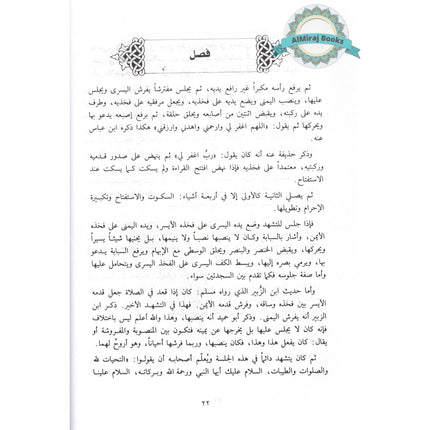 AlMiraj Books
فصل
ثم يرفع رأسه مكبراً غير رافع يديه، ثم يجلس مفترشاً يفرش اليسرى ويجلس
عليها، وينصب اليمنى ويضع يديه على فخذيه، ويجعل مرفقيه على فخذيه، وطرف
يده على ركبته، ويقبض اثنتين من أصابعه ويحلق حلقة، ثم يرفع إصبعه يدعو بها
ويحركها ثم يقول: «اللهم اغفر لي وارحمني واهدني وارزقني» هكذا ذكره ابن عباس
عنه.
وذكر حذيفة عنه أنه كان يقول: «ربِّ اغفر لي» ثم ينهض على صدور قدميه
وركبتيه، معتمداً على فخذيه فإذا نهض افتتح القراءة ولم يسكت كما يسكت عند
الاستفتاح.
ثم يصلي الثانية كالأولى إلا في أربعة أشياء: السكوت والاستفتاح وتكبيرة
الإحرام وتطويلها.
فإذا جلس للتشهد وضع يده اليسرى على فخذه الأيسر، ويده اليمنى على فخذه
الأيمن، وأشار بالسبابة وكان لا ينصبها نصباً ولا ينيمها، بل يحنيها شيئاً يسيراً
ويحركها، ويقبض الخنصر والبنصر ويحلق الوسطى مع الإبهام ويرفع السبابة يدعو
بها، ويرمي بصره إليها، ويبسط الكف اليسرى على الفخذ اليسرى ويتحامل عليها
وأما صفة جلوسه فكما تقدم بين السجدتين سواء.
وأما حديث ابن الزُّبير الذي رواه مسلم: كان إذا قعد في الصلاة جعل قدمه
الأيسر بين فخذه وساقه، وفرش قدمه الأيمن. فهذا في التشهد الأخير. ذكر ابن
الزبير أنه يفرش اليمنى. وذكر أبو حميد أنه ينصبها، وهذا والله أعلم ليس باختلاف
فإنه كان لا يجلس عليها بل يخرجها عن يمينه فتكون بين المنصوبة والمفروشة أو
يقال: كان يفعل هذا وهذا، فكان ينصبها، وربما فرشها أحياناً، وهو أروحُ لهما.
ثم كان يتشهد دائماً في هذه الجلسة ويُعلّم أصحابه أن يقولوا: «التحيات لله
والصلوات والطيبات، السلام عليك أيها النبي ورحمة الله وبركاته، السلام علينا
٢٢